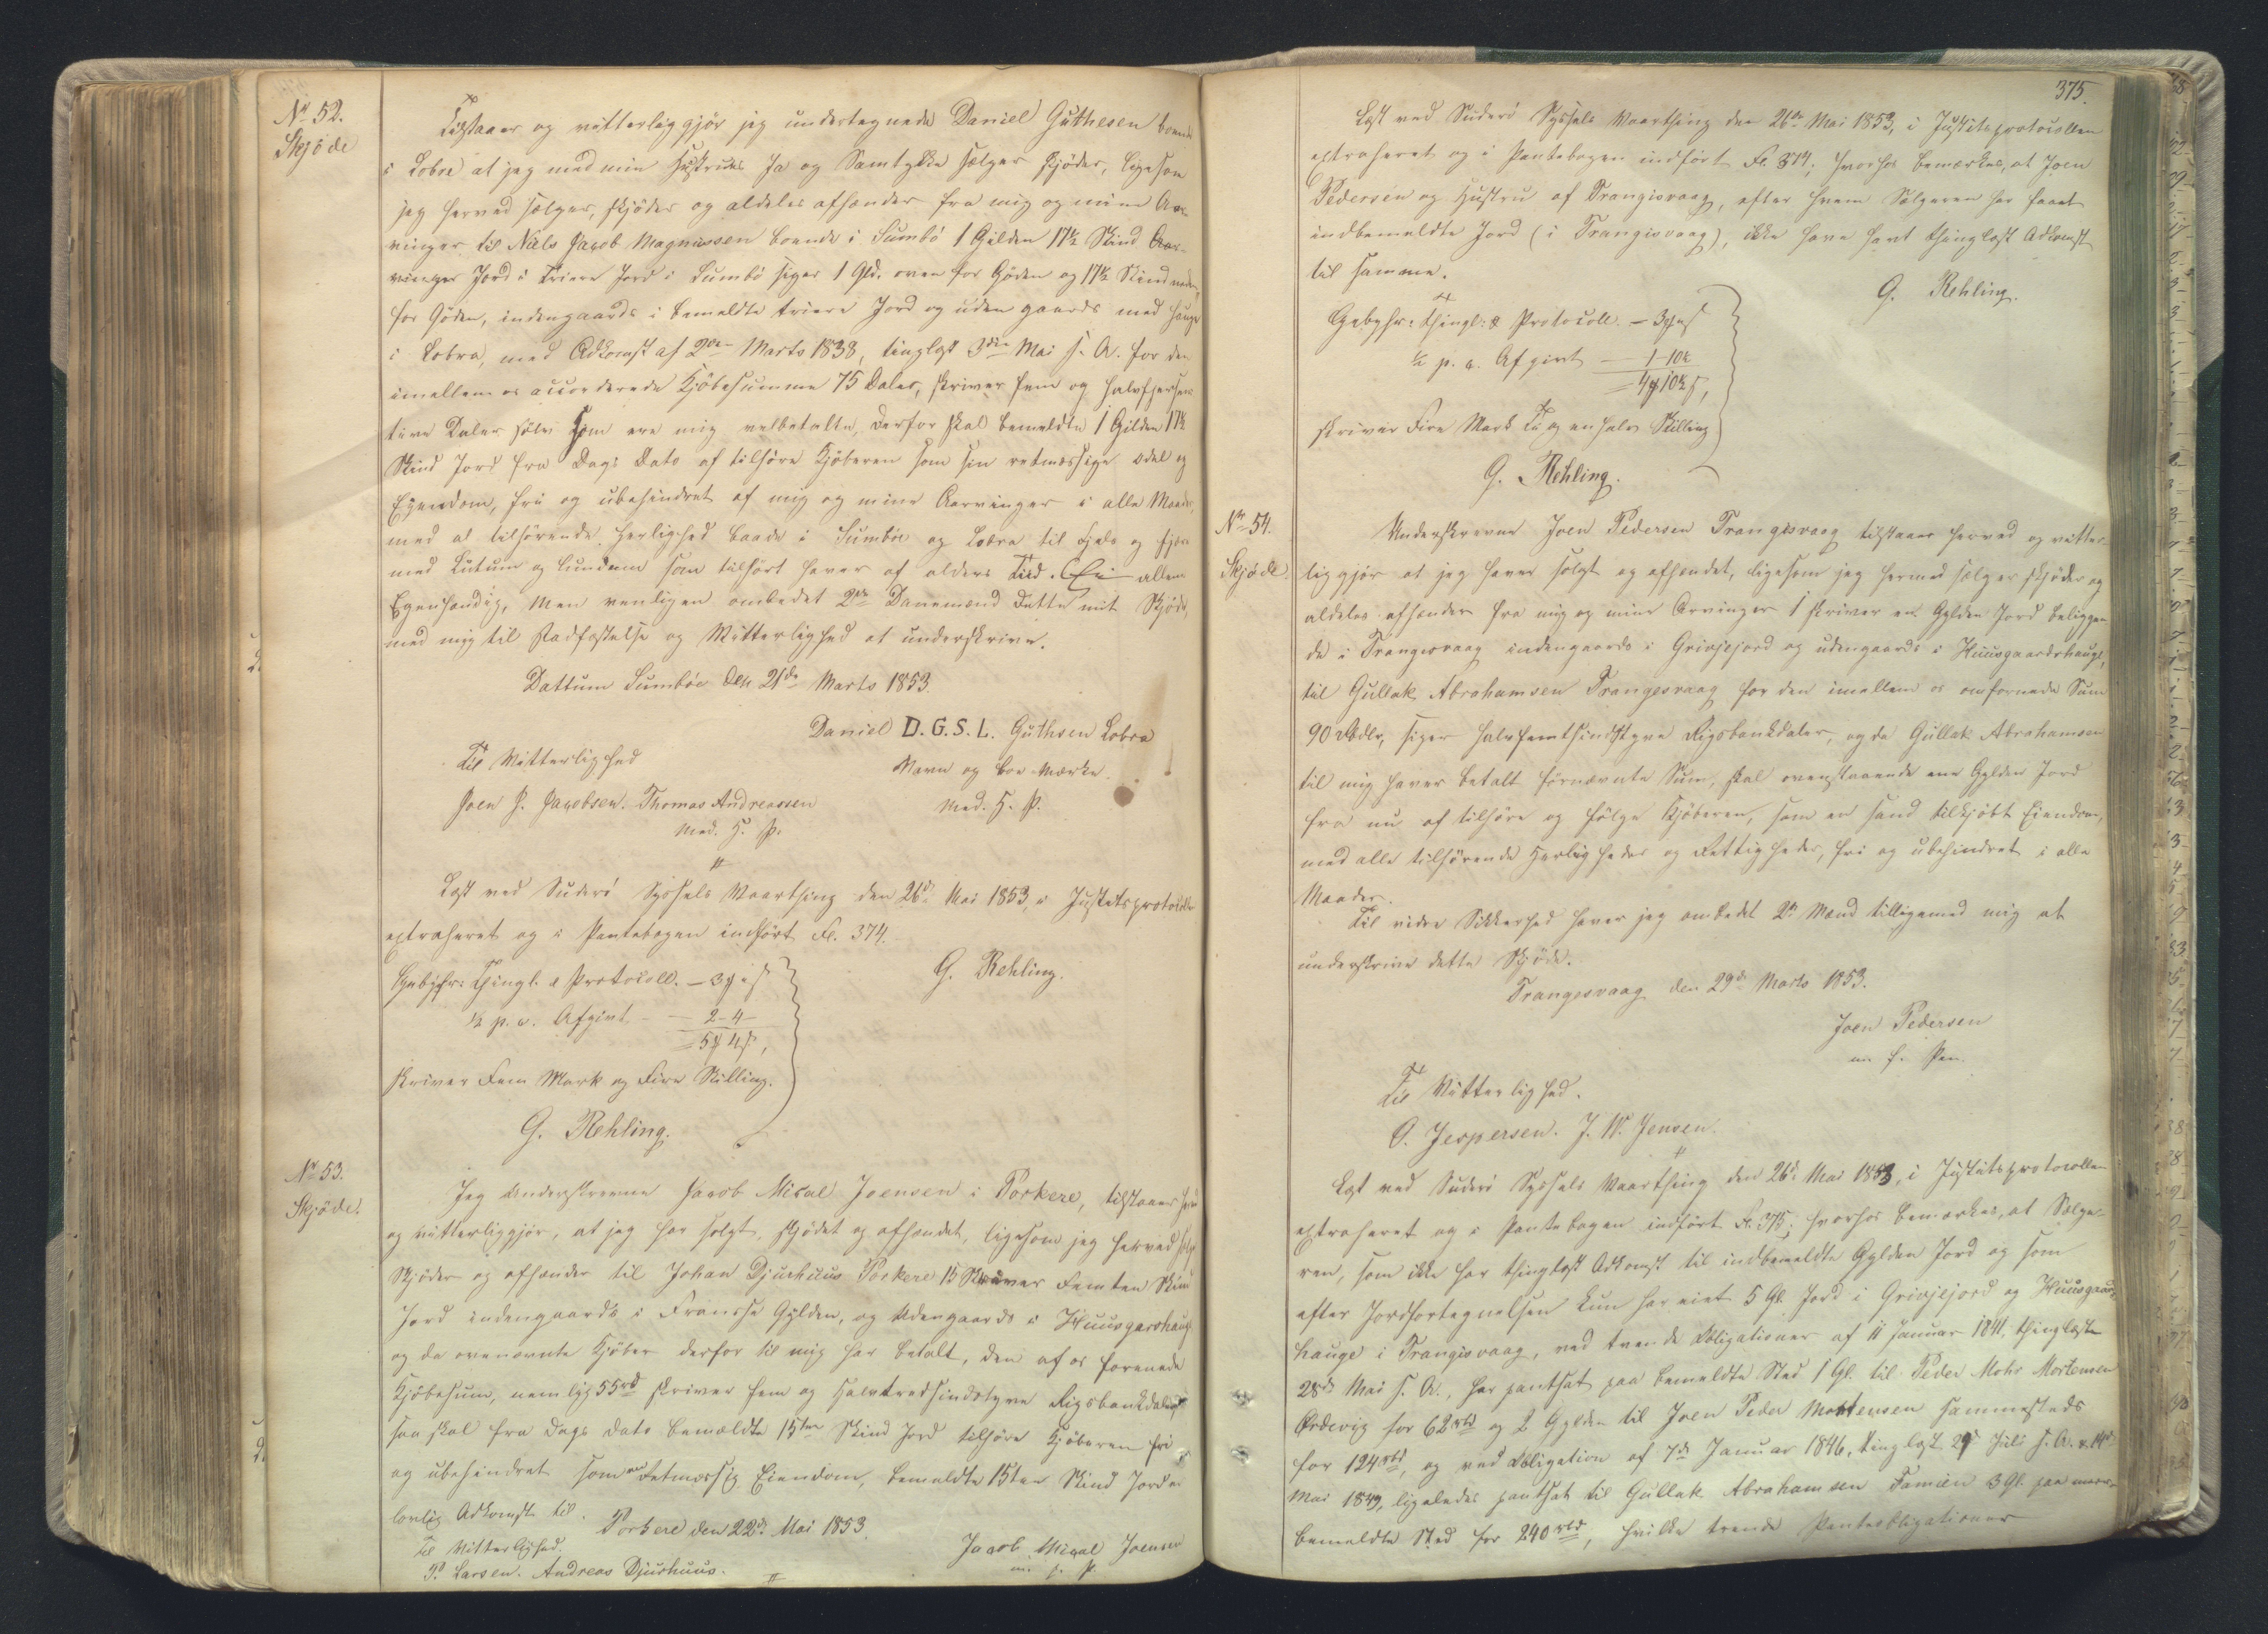 No 52.
Skjöde
Tilstaaer og vitterliggjör jeg undertegnede Daniel Guthesen boende
i Lobra at jeg med min Hustrues Ja og Samtykke sælger skjöder, ligesom
jeg herved sælger, skjöder og aldeles afhænder fra mig og mine Aar-
vinger til Niels Jacob Magnussen boende i Sumbö 1 Gilden 17½ Skind
Jord i triere Jord i Sumbö siger 1 Gld. oven for Göden og 17½ Skind neden
for Göden, indengaards i bemeldte triere Jord og uden gaards med Hauge
i Lobra, med Adkomst af 2den Marts 1838, tinglyst 3die Mai s. A. for den
imellem os accorderede Kjöbesumme 75 Daler, skriver fem og halvfjersens
tive Daler sölv som ere mig velbetalte, derfor skal bemeldte 1 Gilden 17½
Skind Jord fra Dags Dato af tilhöre Kjöberen som sin retmæssige odel og
Eyendom, fri og ubehindret af mig og mine Aarvinger i alle Maader,
med al tilhörende Herlighed baade i Sumböe og Lobra til Fjelds og Fjære
med Lutum og Lundum som tilhört haver af alders Tiid. Ei allene
Egenhændig, Men venligen ombedet 2de Dannemænd dette mit Skjöde,
med mig til Stadfæstelse og Vitterlighed at underskrive.
Dattum Sumböe den 21de Marts 1853.
Daniel D. G. S. L. Guthsen Lobra
Navn og boe Mærke
Med. H. P.
Til Vitterlighed
Joen J. Jacobsen. Thomas Andreassen
Med. H. P.
Læst ved Suderö Syssels Vaarthing den 26d Mai 1853, i Justitsprotocollen
extraheret og i Pantebogen indfört Fl. 374.
G. Rehling.
Gebyhr: Thingl. & Protocoll. – 3 „
½ p. c. Afgivt – 2 - 4 -
= 5 4 ,
skriver Fem Mark og Fire Skilling.
G. Rehling.
No 53.
Skjöde.
Jeg Underskrevne Jacob Mical Joensen i Porkere, tilstaaer herved
og vitterliggjör, at jeg har solgt, skjödet og afhændet, ligesom jeg herved sælger
skjöder og afhænder til Johan Djurhuus Porkere 15 Skriver Femten Skind
Jord indengaards i Fransse Gylden, og Udengaards i Huusgarshauge
og da ovennævnte Kjöber derfor til mig har betalt, den af os forenede
Kjöbesum, nemlig 55rd skriver fem og Halvtredsindstyve Rigsbankdaler
saa skal fra Dags Dato bemældte 15ten Skind Jord tilhöre Kjöberen fri
og ubehindret som en retmæssig Eiendom, bemældte 15ten Skind Jord er
lovlig Adkomst til.
Porkere den 22d Mai 1853.
Til Vitterlighed.
P. Larsen. Andreas Djurhuus.
Jacob Mical Joensen
m. f. P.
375.
Læst ved Suderö Syssels Vaarthing den 26de Mai 1853, i Justitsprotocollen
extraheret og i Pantebogen indfört Fl. 374; hvorhos bemærkes, at Joen
Pedersen og Hustru af Trangisvaag, efter hvem Sælgeren har faaet
indbemeldte Jord (i Trangisvaag), ikke have havt thinglæst Adkomst
til samme.
G. Rehling.
Gebyhr: thingl: & Protocoll. – 3 „
½ p. c. Afgivt – 1 - 10½
= 4 10½ ,
skriver Fire Mark Ti og en halv Skilling
G. Rehling.
No 54.
Skjöde.
Underskrevne Joen Pedersen Trangisvaag tilstaaer herved og vitter-
liggjör at jeg haver solgt og afhændet, ligesom jeg hermed sælger skjöder og
aldeles afhænder fra mig og mine Arvinger 1 skriver en Gylden Jord beliggen-
de i Trangisvaag indengaards i Grivjejord og udengaards i Huusgaardshauge,
til Gullak Abrahamsen Trangisvaag for den imellem os omforenede Sum
90 Rbdlr, siger halvfemtsindstyve Rigsbankdaler, og da Gullak Abrahamsen
til mig haver betalt fornævnte Sum, skal ovenstaaende ene Gylden Jord
fra nu af tilhöre og fölge Kjöberen, som en sand tilkjöbt Eiendom,
med alle tilhörende Herligheder og Rettigheder, fri og ubehindret i alle
Maader.
Til videre Sikkerhed haver jeg ombedet 2de Mænd tilligemed mig at
underskrive dette Skjöde.
Trangisvaag den 29d Marts 1853.
Joen Pedersen
m. f. Pen.
Til Vitterlighed.
O. Jespersen. J. W. Jensen.
Læst ved Suderö Syssels Vaarthing den 26d Mai 1853, i Justitsprotocollen
extraheret og i Pantebogen indfört Fl. 375; hvorhos bemærkes, at Sælge-
ren, som ikke har thinglæst Adkomst til indbemeldte Gylden Jord og som
efter Jordfortegnelsen kun har eiet 5 Gl. Jord i Grivjejord og Huusgaards
hauge i Trangisvaag, ved tvende Obligationer af 11 Januar 1841, thinglæste
28d Mai s. A., har pantsat paa bemeldte Sted 1 Gl. til Peder Mohr Mortensen
Ördevig for 62 rbd og 2 Gylden til Joen Peder Mortensen sammesteds
for 124 rbd, og ved Obligation af 7d Januar 1846, tinglæst 29 Juli s. A. & 14d
Mai 1849, ligeledes pantsat til Gullak Abrahamsen Famien 3 Gl. paa meer-
bemeldte Sted for 240 rbd, hvilke trende Panteobligationer